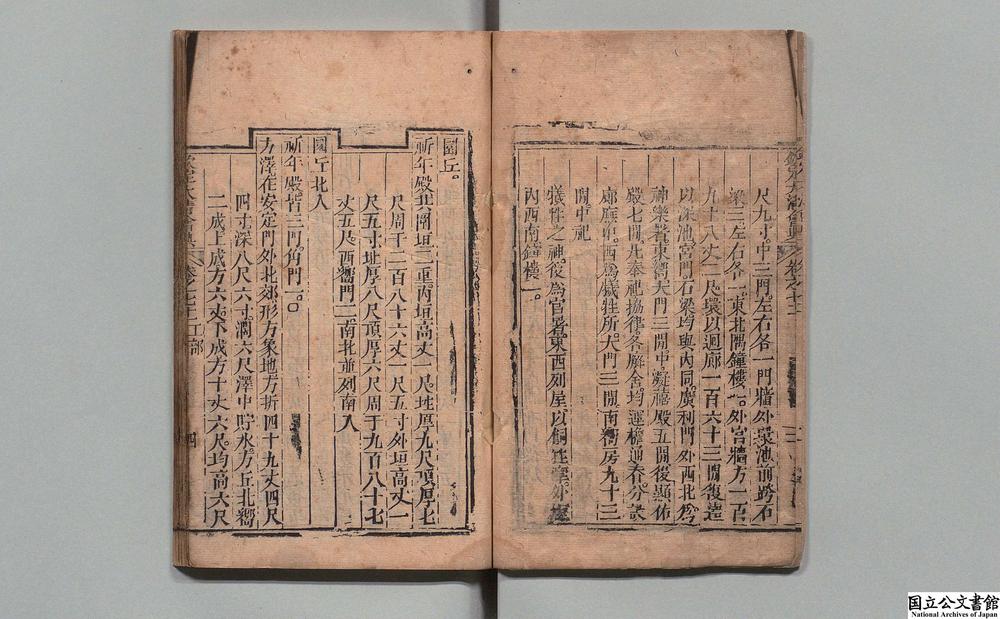 尺九寸。中三門。左右各一門。牆外浚池前跨石
梁三左右各一。東北隅鐘樓一。外宮牆方一百
九十八丈二尺。環以迴廊一百六十三閒。復遶
以深池宮門石梁均與內同。廣利門外西北為
神樂署。東嚮大門三閒。中凝禧殿五閒。後顯佑
殿七閒。凡奉祀協律各廨舍。均連檐通脊。分
廊庭中。西為犧牲所。大門三閒。南嚮房九十三
閒中祀
犧牲之神後為官署。東西列屋以飼牲牢。外
內西南鐘樓一。
圜丘。
祈年殿共圍垣二重。內垣高丈一尺。址厚九尺。頂厚七
尺。周千二百八十六丈一尺五寸。外垣高丈一
尺五寸。址厚八尺。頂厚六尺。周千九百八十七
丈五尺。西嚮門二。南北並列。南入
圜丘。北入
祈年殿。皆三門。角門一。○
方澤在安定門外北郊。形方象地。方折四十九丈四尺
四寸。深八尺六寸。濶六尺。澤中貯水。方丘北嚮
二成。上成方六丈。下成方十丈六尺。均高六尺
欽定大清會典 卷之七十二 工部 四
国立公文書館
National Archives of Japan